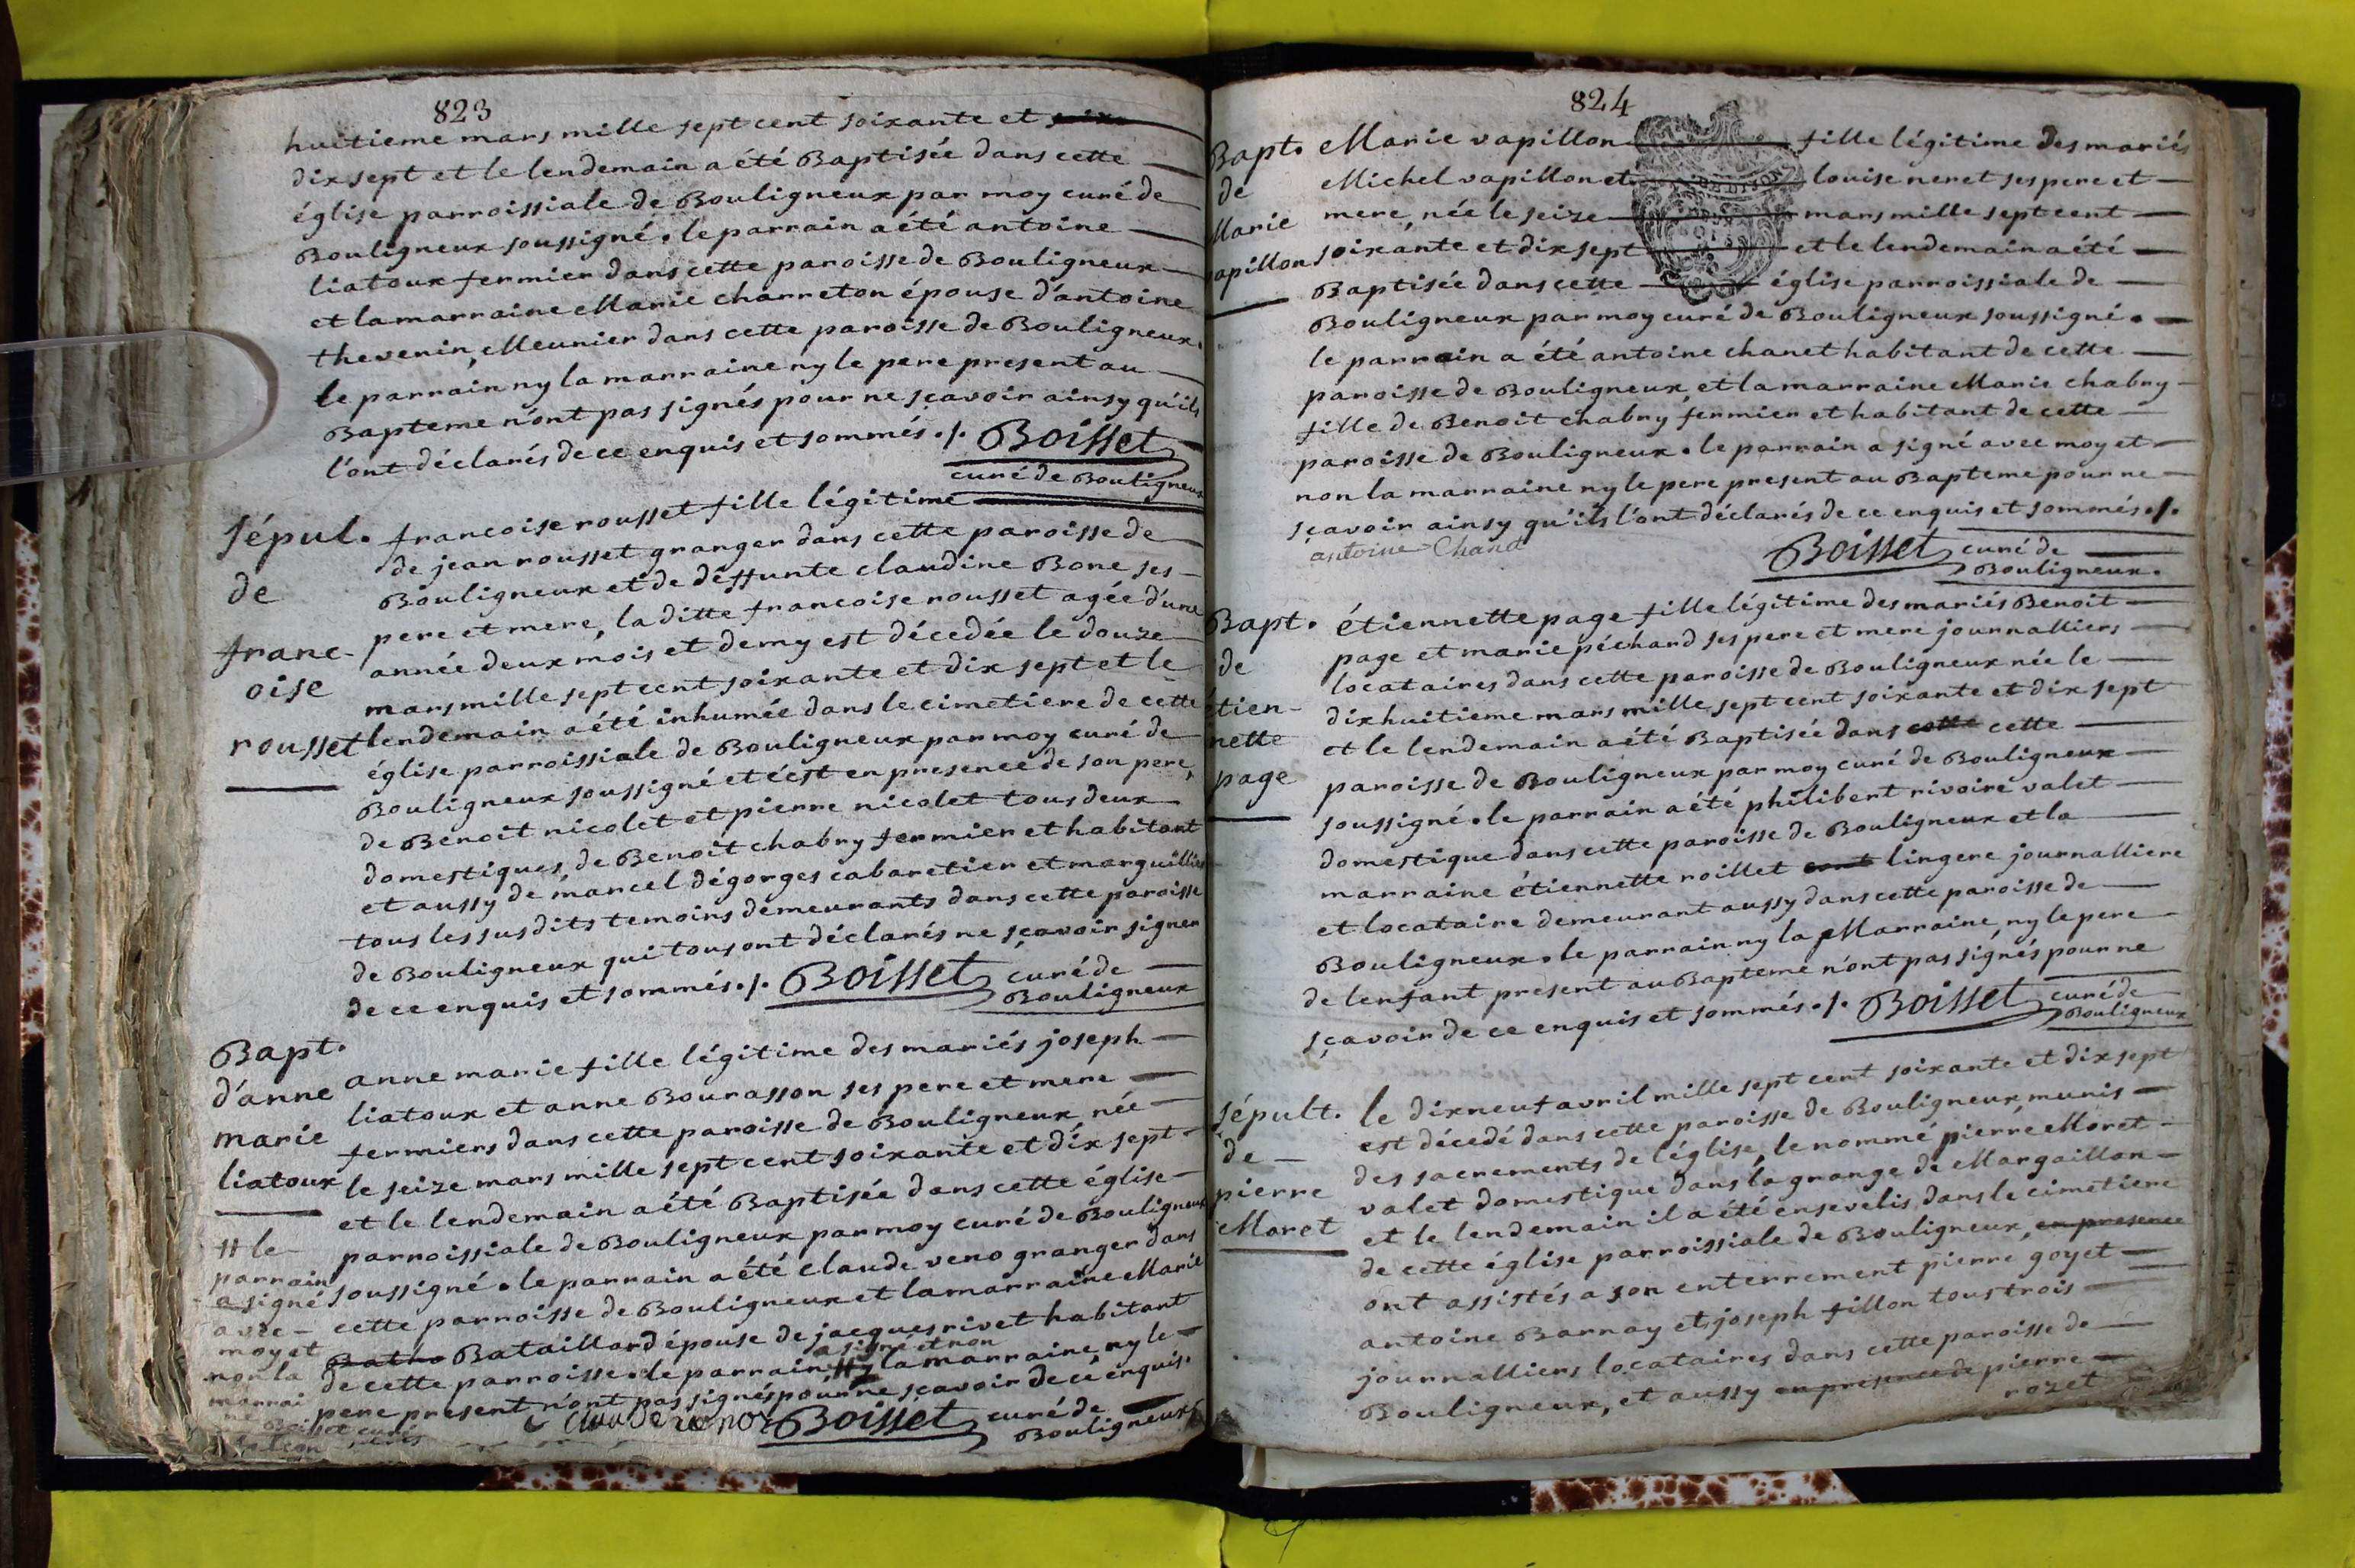 823
huitieme mars mille sept cent soixante et
dix sept et le lendemain a été Baptisée dans cette
église parroissiale de Bouligneux par moy curé de
Bouligneux soussigné. le parrain a été antoine
liatoux fermier dans cette paroisse de Bouligneux
et la marraine Marie charreton épouse d'antoine
thevenin, Meunier dans cette paroisse de Bouligneux.
le parrain ny la marraine ny le pere present au
Bapteme n'ont pas signés pour ne sçavoir ainsy qu'ils
l'ont déclarés de ce enquis et sommés ./. Boisset
curé de Bouligneux
Sépul. de francoise rousset
francoise rousset fille légitime
de jean rousset granger dans cette paroisse de
Bouligneux et de deffunte claudine Bone ses
pere et mere, la ditte francoise rousset agée d'une
année deux mois et demy est décedée le douze
mars mille sept cent soixante et dix sept et le
lendemain a été inhumée dans le cimetiere de cette
église parroissiale de Bouligneux par moy curé de
Bouligneux soussigné et c'est en presence de son pere,
de Benoit nicolet et pierre nicolet tous deux
domestiques, de Benoit chabry fermier et habitant
et aussy de marcel dégorges cabaretier et marguillier
tous les susdits temoins demeurants dans cette paroisse
de Bouligneux qui tous ont déclarés ne sçavoir signer
de ce enquis et sommés ./. Boisset curé de
Bouligneux
Bapt. d'anne marie liatoux
anne marie fille légitime des mariés joseph
liatoux et anne Bourasson ses pere et mere
fermiers dans cette paroisse de Bouligneux, née
le seize mars mille sept cent soixante et dix sept
et le lendemain a été Baptisée dans cette église
parroissiale de Bouligneux par moy curé de Bouligneux
soussigné. le parrain a été claude veno granger dans
cette parroisse de Bouligneux et la marraine Marie
Batho Bataillard épouse de jacques rivet habitant
a signé et non
de cette parroisse. le parrain # la marraine, ny le
pere present n'ont pas signés pour ne sçavoir de ce enquis.
Boisset curé de
Bouligneux
# le
parrain
a signé
avec
moy et
non la
marrai
ne
Boisset curé
824
Bapt. de Marie vapillon
Marie vapillon fille légitime des mariés
Michel vapillon et louise neret ses pere et
mere, née le seize mars mille sept cent
soixante et dix sept et le lendemain a été
Baptisée dans cette église parroissiale de
Bouligneux par moy curé de Bouligneux soussigné.
le parrain a été antoine chanet habitant de cette
paroisse de Bouligneux, et la marraine Marie chabry
fille de Benoit chabry fermier et habitant de cette
paroisse de Bouligneux. le parrain a signé avec moy et
non la marraine ny le pere present au Bapteme pour ne
sçavoir ainsy qu'ils l'ont déclarés de ce enquis et sommés ./.
antoine Chana
Boisset curé de
Bouligneux.
Bapt. de étiennette page
étiennette page fille légitime des mariés Benoit
page et marie péchard ses pere et mere journalliers
locataires dans cette paroisse de Bouligneux née le
dix huitieme mars mille sept cent soixante et dix sept
et le lendemain a été Baptisée dans cette cette
paroisse de Bouligneux par moy curé de Bouligneux
soussigné. le parrain a été philibert rivoire valet
domestique dans cette paroisse de Bouligneux et la
marraine étiennette roillet lingere journalliere
et locataire demeurant aussy dans cette paroisse de
Bouligneux. le parrain ny la Marraine, ny le pere
de lenfant present au Bapteme n'ont pas signés pour ne
sçavoir de ce enquis et sommés ./. Boisset curé de
Bouligneux
Sépult. de pierre Moret
le dixneuf avril mille sept cent soixante et dix sept
est décedé dans cette paroisse de Bouligneux munis
des sacrements de l'église, le nommé pierre Moret
valet domestique dans la grange de Margaillan
et le lendemain il a été ensevelis dans le cimetiere
de cette église parroissiale de Bouligneux, en presence
ont assistés a son enterrement pierre goyet
antoine Barnay et joseph fillon tous trois
journalliers locataires dans cette paroisse de
Bouligneux, et aussy en presence de pierre
rozet